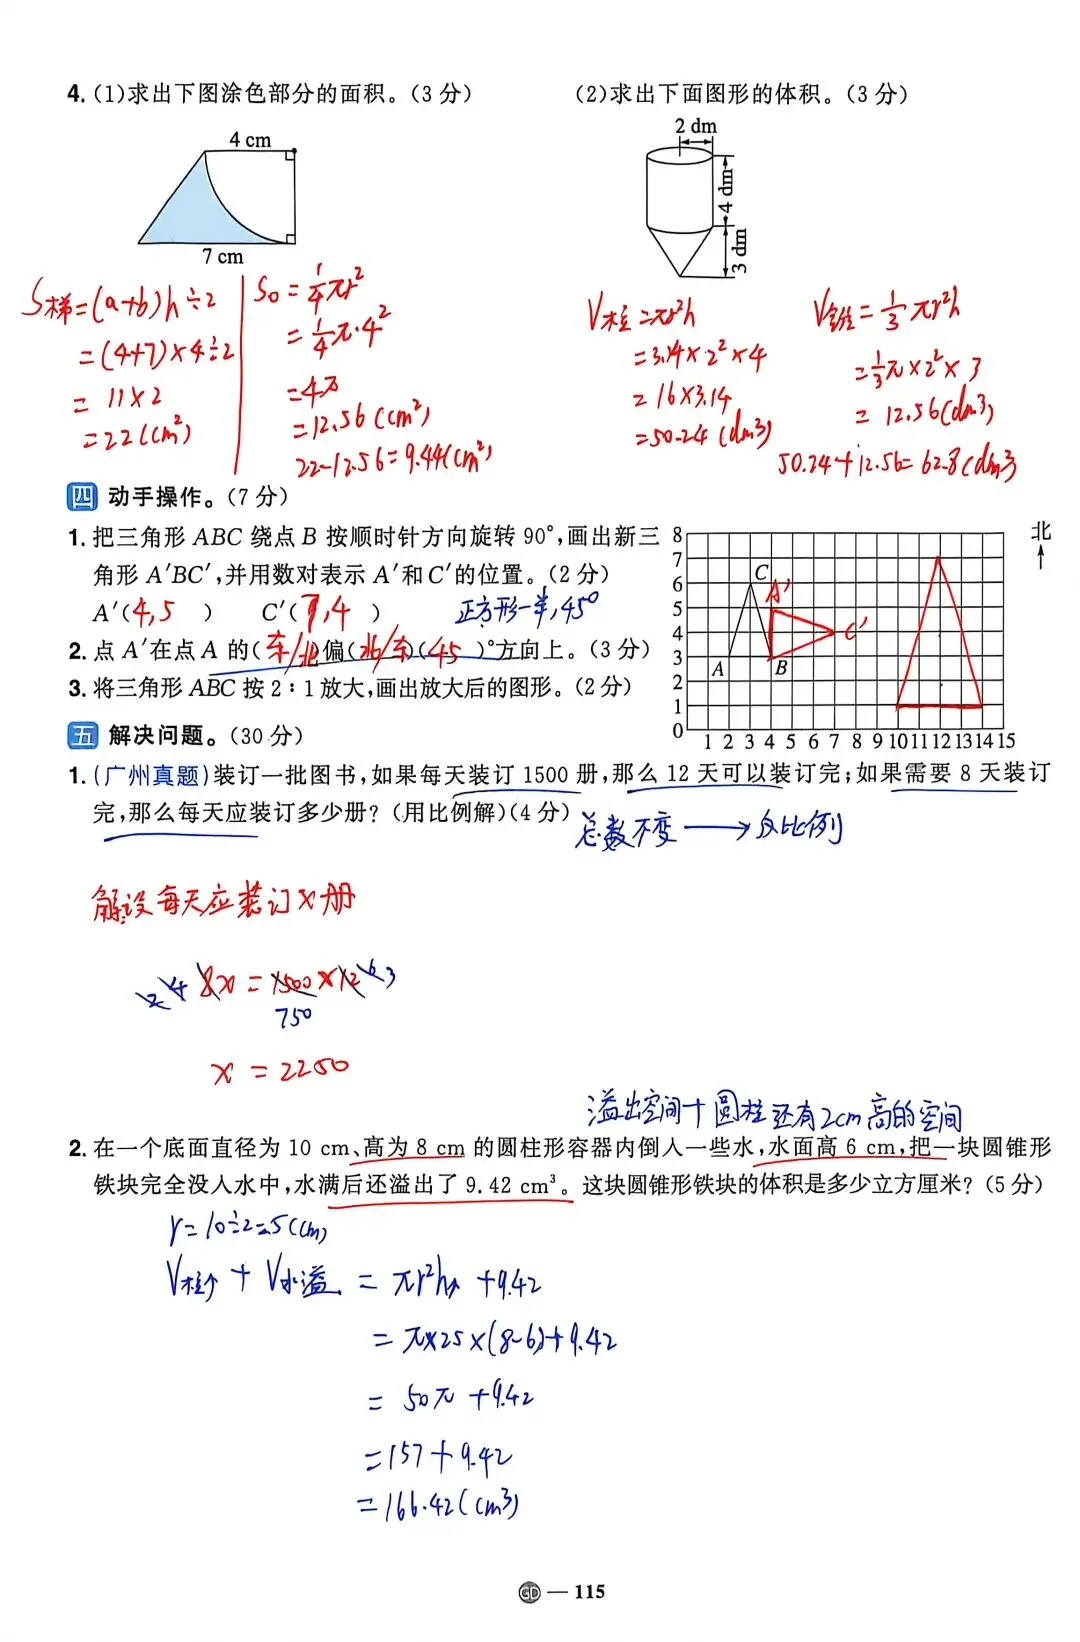 4.(1)求出下图涂色部分的面积。(3分)
(2)求出下面图形的体积。(3分)
4 cm
7 cm
2 dm
4 dm
3 dm
S梯=(a+b)h÷2
=(4+7)×4÷2
= 11×2
=22(cm²)
S○=1/4πr²
=1/4π·4²
=4π
=12.56(cm²)
22-12.56=9.44(cm²)
V柱=πr²h
=3.14×2²×4
=16×3.14
=50.24(dm³)
V锥=1/3πr²h
=1/3π×2²×3
= 12.56(dm³)
50.24+12.56=62.8(dm³)
四 动手操作。(7分)
1. 把三角形ABC绕点B按顺时针方向旋转90°,画出新三
角形A′BC′,并用数对表示A′和C′的位置。(2分)
A′(4,5) C′(7,4) 正方形一半,45°
2. 点A′在点A的(东/北)偏(北/东)(45)°方向上。(3分)
3. 将三角形ABC按2:1放大,画出放大后的图形。(2分)
北
8
7
6
5
4
3
2
1
0
1 2 3 4 5 6 7 8 9 10 11 12 13 14 15
C
A
B
A′
C′
五 解决问题。(30分)
1. (广州真题)装订一批图书,如果每天装订1500册,那么12天可以装订完;如果需要8天装订
完,那么每天应装订多少册?(用比例解)(4分)
总数不变→反比例
解设每天应装订x册
2 4 8x=1500×12 6 3
750
x=2250
溢出空间+圆柱还有2cm高的空间
2. 在一个底面直径为10 cm、高为8 cm的圆柱形容器内倒入一些水,水面高6 cm,把一块圆锥形
铁块完全没入水中,水满后还溢出了9.42 cm³。这块圆锥形铁块的体积是多少立方厘米?(5分)
r=10÷2=5(cm)
V柱↑+V水溢=πr²h↑+9.42
=π×25×(8-6)+9.42
=50π+9.42
=157+9.42
=166.42(cm³)
GD — 115